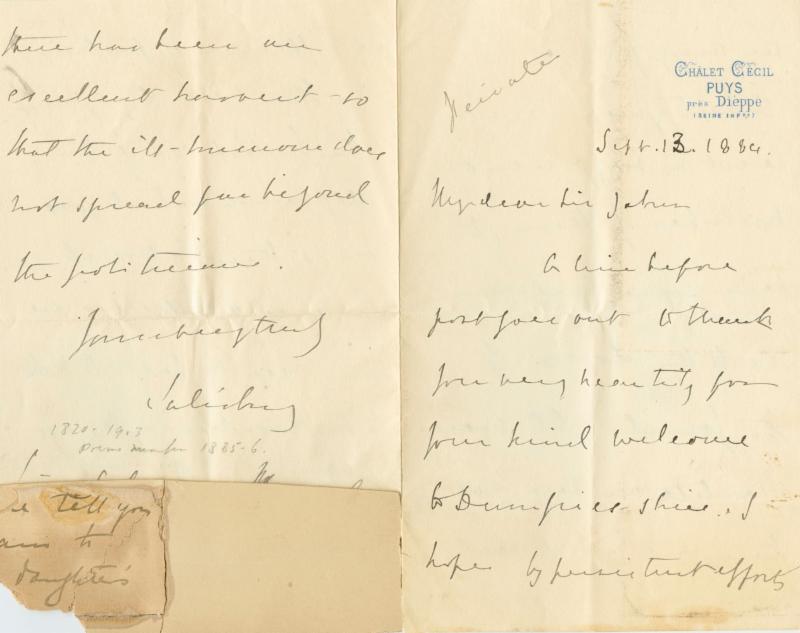 Private
CHALET CECIL
PUYS
près Dieppe
(SEINE INFre)
Sept. 13. 1884.
My dear Sir John
A line before
post goes out to thank
you very heartily for
your kind welcome
to Dumfries-shire. I
hope by persistent efforts
there has been an
excellent harvest - so
that the ill-humour does
not spread far beyond
the politicians.
Yours very truly
Salisbury
1830-1903
Prime minister 1885-6.
tell you
to
daughter's